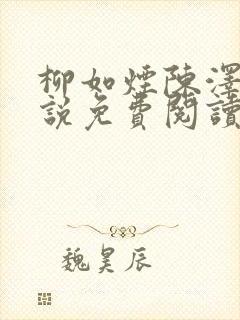 柳如煙陳澤
說免費閱讀
魏昊辰